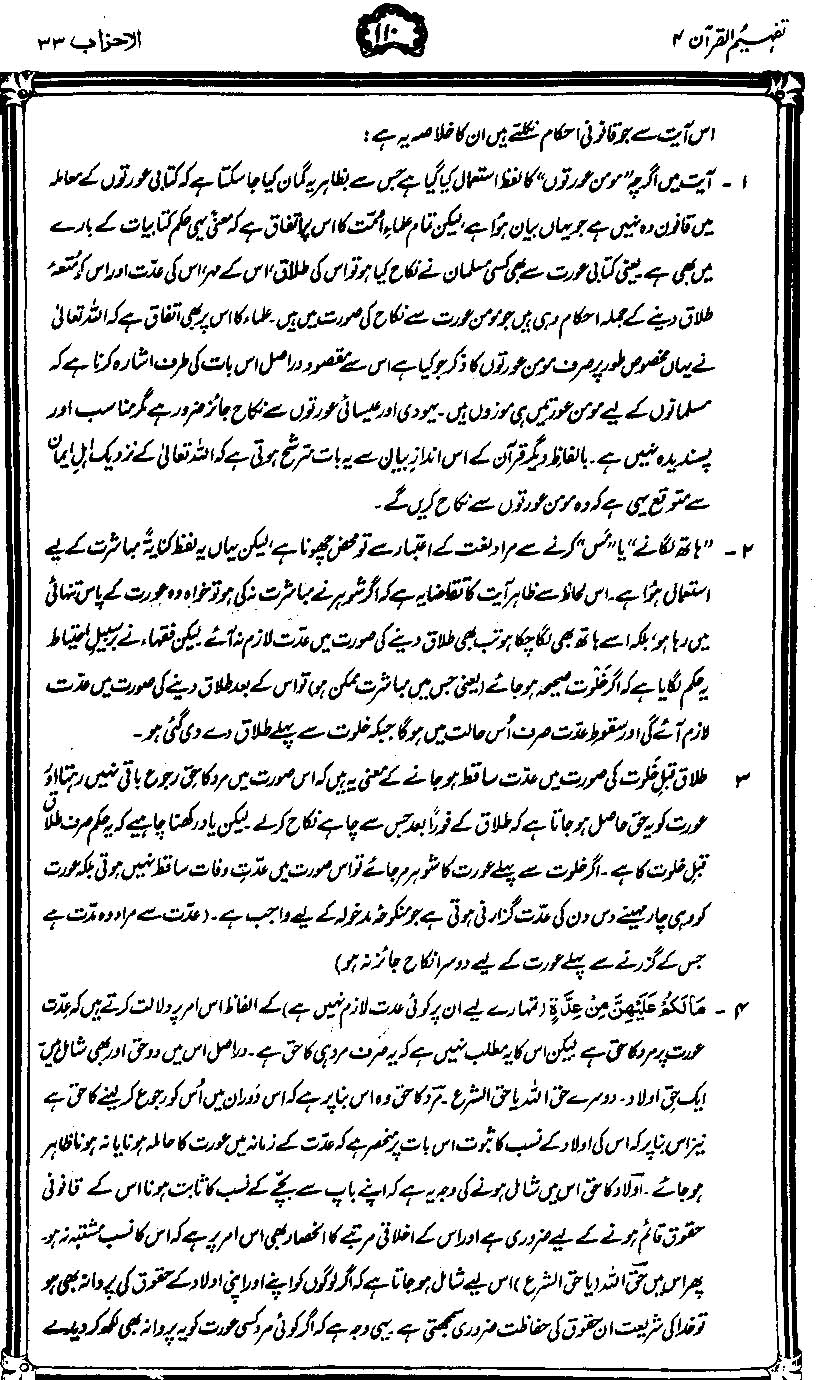 تفہیم القرآن ۴
۱۱۰
الاحزاب ۳۳
اس آیت سے جو قانونی احکام نکلتے ہیں ان کا خلاصہ یہ ہے:
۱ - آیت میں اگرچہ ”مومن عورتوں“ کا لفظ استعمال کیا گیا ہے جس سے بظاہر یہ گمان کیا جا سکتا ہے کہ کتابی عورتوں کے معاملہ
میں قانون وہ نہیں ہے جو یہاں بیان ہوا ہے، لیکن تمام علماء امت کا اس پر اتفاق ہے کہ معنیً یہی حکم کتابیات کے بارے
میں بھی ہے یعنی کتابی عورت سے بھی کسی مسلمان نے نکاح کیا ہو تو اس کی طلاق، اس کے مہر، اس کی عدت اور اس کو متعۂ
طلاق دینے کے جملہ احکام وہی ہیں جو مومن عورت سے نکاح کی صورت میں ہیں۔ علماء کا اس پر بھی اتفاق ہے کہ اللہ تعالیٰ
نے یہاں مخصوص طور پر صرف مومن عورتوں کا ذکر جو کیا ہے اس سے مقصود دراصل اس بات کی طرف اشارہ کرنا ہے کہ
مسلمانوں کے لیے مومن عورتیں ہی موزوں ہیں۔ یہودی اور عیسائی عورتوں سے نکاح جائز ضرور ہے مگر مناسب اور
پسندیدہ نہیں ہے۔ بالفاظ دیگر قرآن کے اس انداز بیان سے یہ بات مترشح ہوتی ہے کہ اللہ تعالیٰ کے نزدیک اہل ایمان
سے متوقع یہی ہے کہ وہ مومن عورتوں سے نکاح کریں گے۔
۲ - ”ہاتھ لگانے“ یا ”مَس“ کرنے سے مراد لغت کے اعتبار سے تو محض چھونا ہے، لیکن یہاں یہ لفظ کنایۃً مباشرت کے لیے
استعمال ہوا ہے۔ اس لحاظ سے ظاہر آیت کا تقاضا یہ ہے کہ اگر شوہر نے مباشرت نہ کی ہو تو خواہ وہ عورت کے پاس تنہائی
میں رہا ہو، بلکہ اسے ہاتھ بھی لگا چکا ہو تب بھی طلاق دینے کی صورت میں عدت لازم نہ آئے۔ لیکن فقہاء نے برسبیل احتیاط
یہ حکم لگایا ہے کہ اگر خلوت صحیحہ ہو جائے (یعنی جس میں مباشرت ممکن ہو) تو اس کے بعد طلاق دینے کی صورت میں عدت
لازم آئے گی اور سقوطِ عدت صرف اُس حالت میں ہوگا جبکہ خلوت سے پہلے طلاق دے دی گئی ہو۔
۳ طلاق قبل خلوت کی صورت میں عدت ساقط ہو جانے کے معنی یہ ہیں کہ اس صورت میں مرد کا حق رجوع باقی نہیں رہتا اور
عورت کو یہ حق حاصل ہو جاتا ہے کہ طلاق کے فوراً بعد جس سے چاہے نکاح کر لے۔ لیکن یاد رکھنا چاہیے کہ یہ حکم صرف طلاق
قبل خلوت کا ہے۔ اگر خلوت سے پہلے عورت کا شوہر مر جائے تو اس صورت میں عدتِ وفات ساقط نہیں ہوتی بلکہ عورت
کو وہی چار مہینے دس دن کی عدت گزارنی ہوتی ہے جو منکوحۂ مدخولہ کے لیے واجب ہے۔ (عدت سے مراد وہ مدت ہے
جس کے گزرنے سے پہلے عورت کے لیے دوسرا نکاح جائز نہ ہو)
۴ - مَالَكُمْ عَلَيْهِنَّ مِنْ عِدَّةٍ (تمہارے لیے ان پر کوئی عدت لازم نہیں ہے) کے الفاظ اس امر پر دلالت کرتے ہیں کہ عدت
عورت پر مرد کا حق ہے لیکن اس کا یہ مطلب نہیں ہے کہ یہ صرف مرد ہی کا حق ہے۔ دراصل اس میں دو حق اور بھی شامل ہیں
ایک حق اولاد۔ دوسرے حق اللہ یا حق الشرع۔ مرد کا حق وہ اس بنا پر ہے کہ اس دَوران میں اُس کو رجوع کر لینے کا حق ہے
نیز اس بنا پر کہ اس کی اولاد کے نسب کا ثبوت اس بات پر منحصر ہے کہ عدت کے زمانہ میں عورت کا حاملہ ہونا یا نہ ہونا ظاہر
ہو جائے۔ اولاد کا حق اس میں شامل ہونے کی وجہ یہ ہے کہ اپنے باپ سے بچے کے نسب کا ثابت ہونا اس کے قانونی
حقوق قائم ہونے کے لیے ضروری ہے اور اس کے اخلاقی مرتبے کا انحصار بھی اس امر پر ہے کہ اس کا نسب مشتبہ نہ ہو۔
پھر اس میں حق اللہ (یا حق الشرع) اس لیے شامل ہو جاتا ہے کہ اگر لوگوں کو اپنے اور اپنی اولاد کے حقوق کی پروا نہ بھی ہو
تو خدا کی شریعت ان حقوق کی حفاظت ضروری سمجھتی ہے۔ یہی وجہ ہے کہ اگر کوئی مرد کسی عورت کو یہ پروانہ بھی لکھ کر دیدے